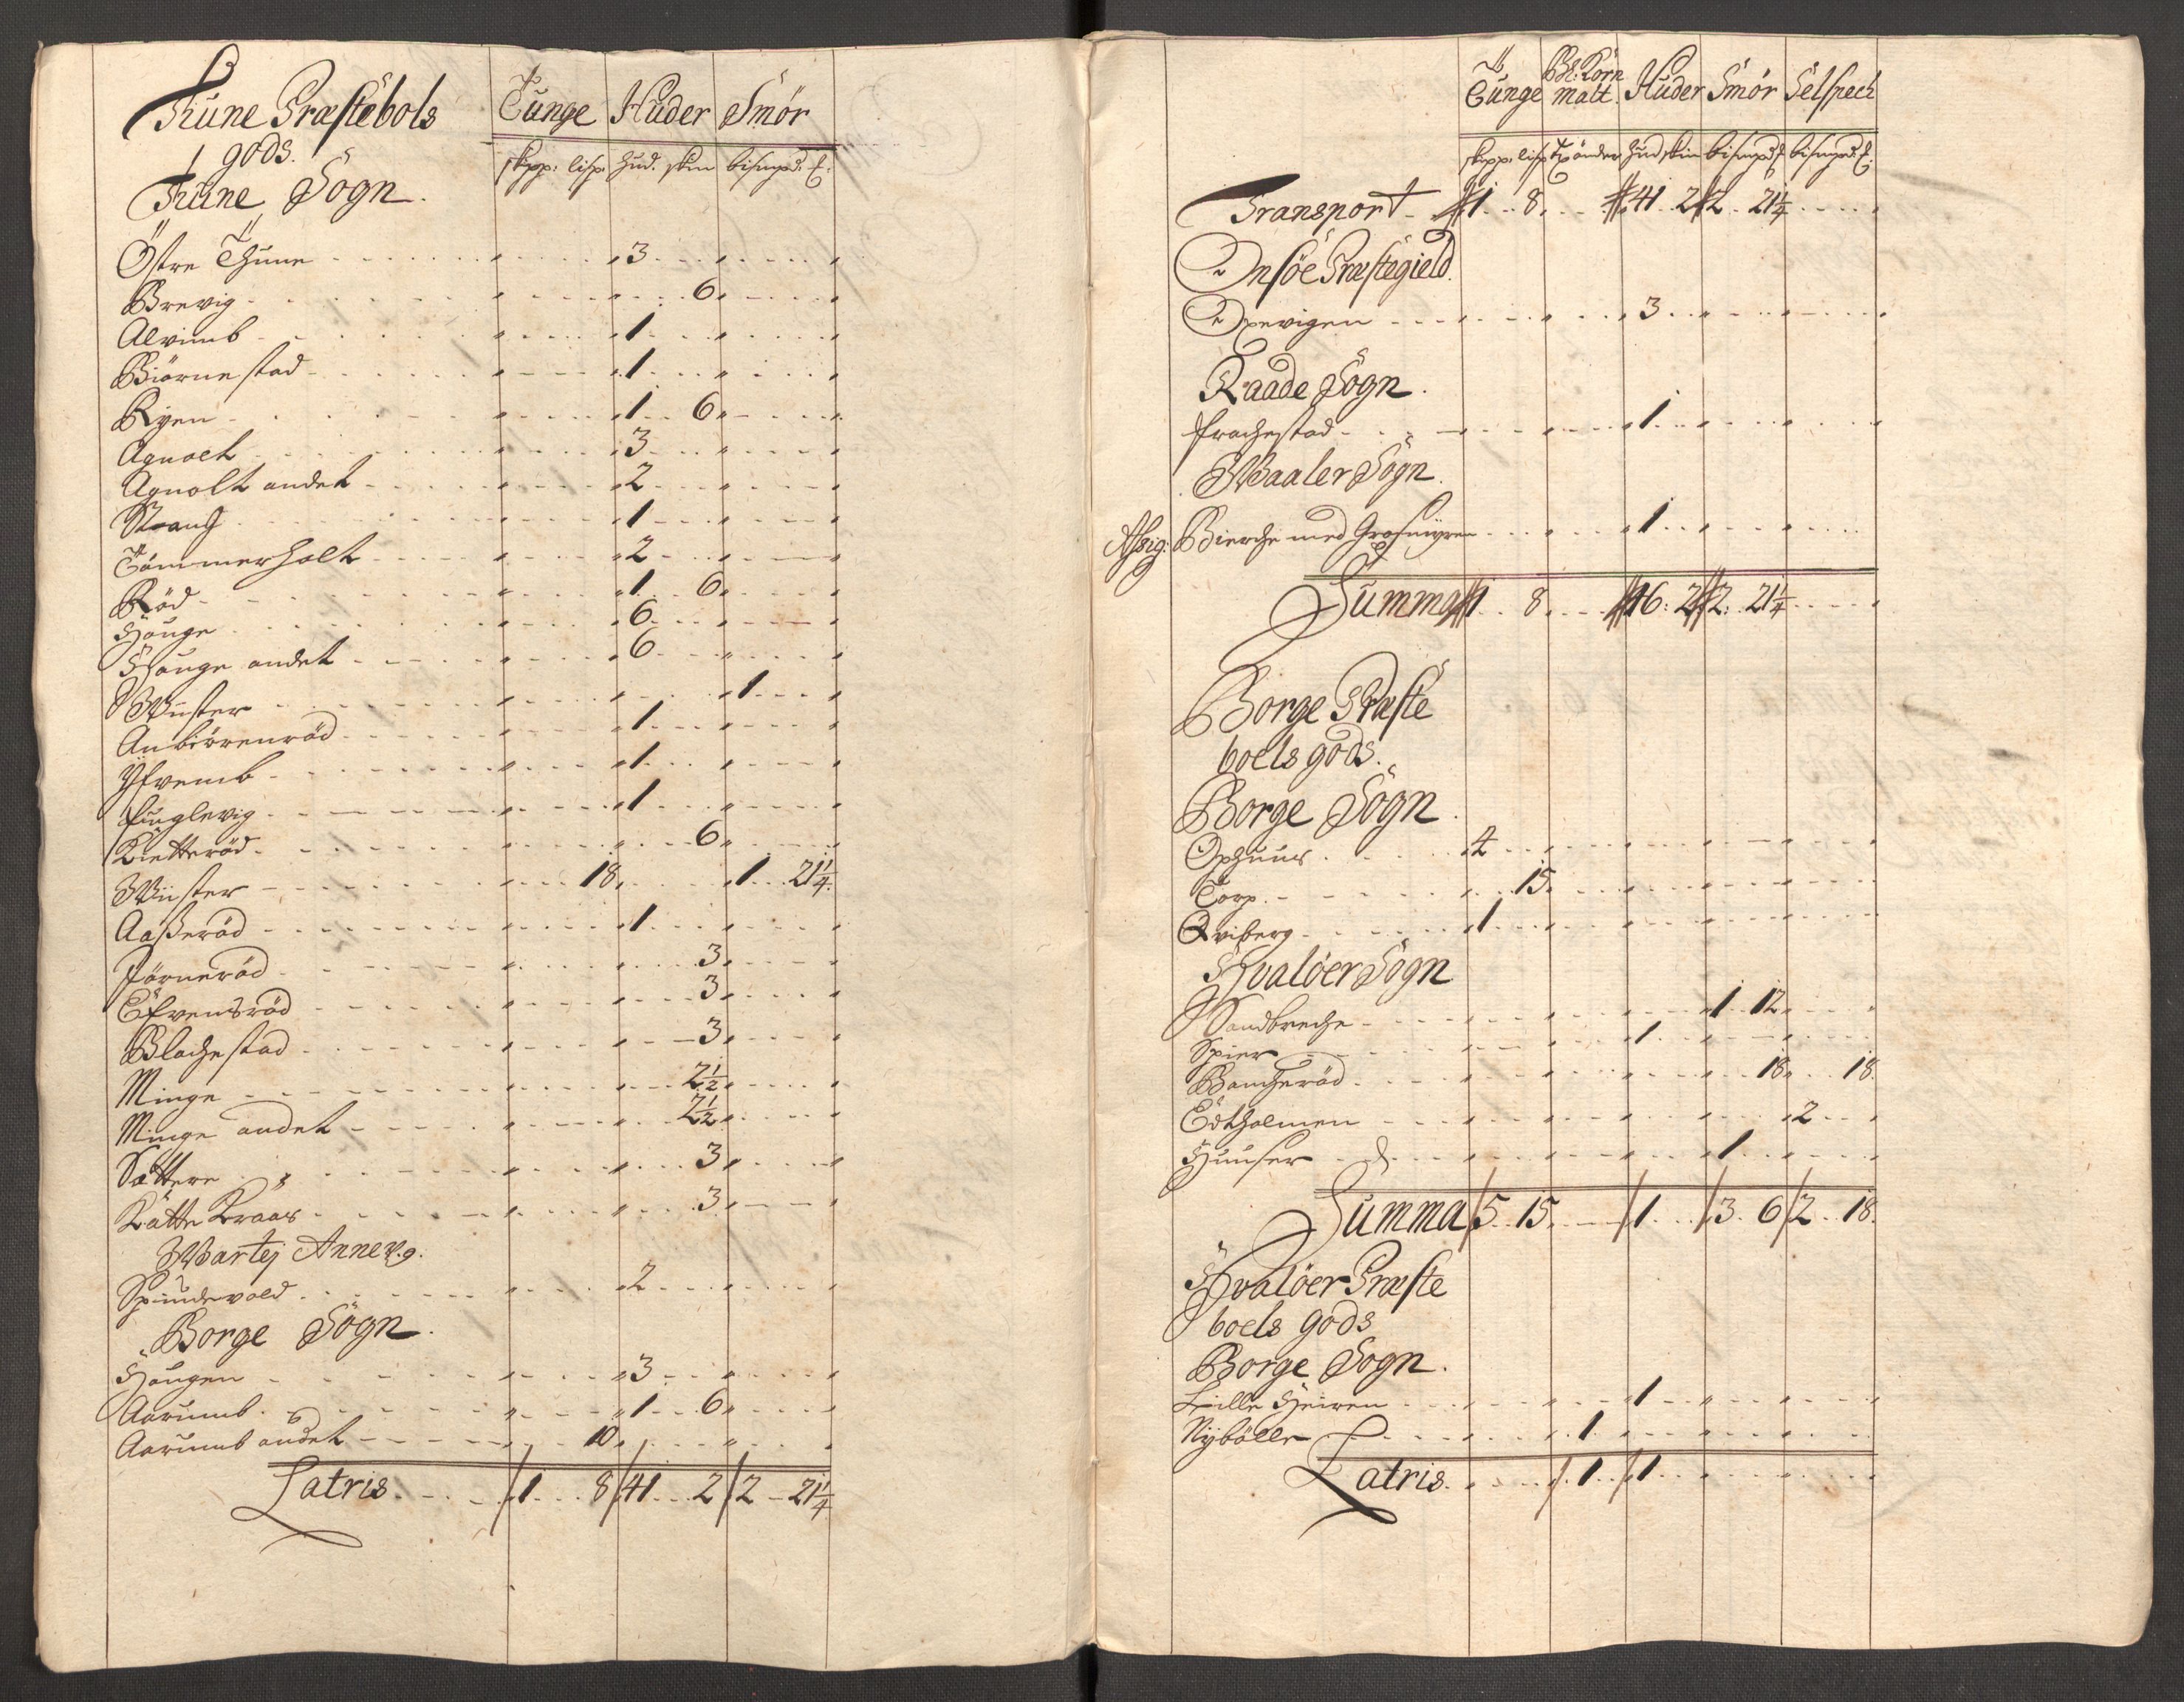 Thune Præstebols Tunge Huder Smør
gods. skpp: lisp: hud. skin bismpd: £:
Thune Sogn.
Östre Thune 3
Brevig 6
Alvimb 1
Biörnestad 1
Ryen 1 6
Agnalt 3
Agnolt andet 2
Strang 1
Tömmerholt 2
Röd 1 6
Houge 6
Houge andet 6
Wister 1
Anbiörenröd 1
Yfvemb 1
fuglevig 1
Kietteröd 6
Wiister 18 1 21¼
Aasseröd 1
Jörneröd 3
Efvensröd 3
Blachestad 3
Minge 2½
Minge andet 2½
Sættere 3
Katte Kraas 3
Martej Annex.g.
Spundevold 2
Borge Sogn.
Hougen 3
Aarumb 1 6
Aarumb andet 10
Latris 1 8 41 2 2 21¼
Tunge Bl: Korn malt Huder Smør Selspech
skpp: lisp Tönder hud skin bismpd £ bismpd: £:
Transport 1 8 41 2 2 21¼
Onsöe Præstegield
Oxevigen 3
Raade Sogn.
frachestad 1
Waaler Sogn.
Afsig: Bierche med Grosmyren 1
Summa 1 8 46: 2 2: 21¼
Borge Præste
boels gods.
Borge Sogn.
Ophuus 4
Torp 15
Qviberg 1
Hvalöer Sogn
Sandbreche 1 12
Spier 1
Bancheröd 18 18
Edtholmen 2
Huuser 1
Summa 5 15 1 3 6 2 18
Hvalöer Præste
boels gods
Borge Sogn.
Lille Heiren 1
Nybölle 1
Latris 1 1